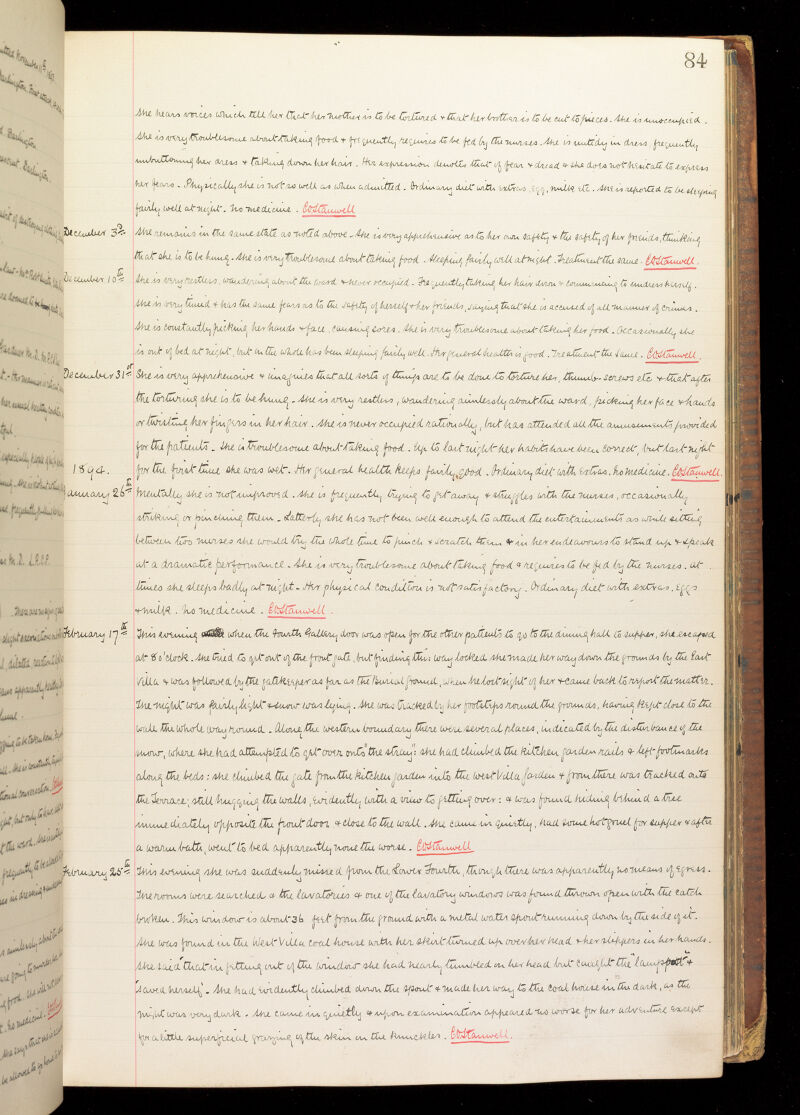 84
She hears voices which tell her that her mother is to be tortured & that her brother is to be cut to pieces. She is unoccupied.
She is very troublesome about taking food & frequently requires to be fed by the nurses. She is untidy in dress, frequently
unbuttoning her dress & taking down her hair. Her expression denotes that of fear & dread & she does not hesitate to express
her fears. Physically she is not so well as when admitted. Ordinary diet with extras, egg, milk etc. She is reported to be sleeping
fairly well at night. No medicine. COStanwell
December 3rd She remains in the same state as noted above. She is very apprehensive as to her own safety & the safety of her friends, thinking
that she is to be hung. She is very troublesome about taking food. Sleeping fairly well at night. Treatment the same. COStanwell.
December 10th She is very restless, wandering about the ward & never occupied. Frequently taking her hair down & commencing to undress herself.
She is very timid & has the same fears as to the safety of herself & her friends, saying that she is accused of all manner of crimes.
She is constantly picking her hands & face, causing sores. She is very troublesome about taking her food. Occasionally she
is out of bed at night, but on the whole has been sleeping fairly well. Her general health is good. Treatment the same. COStanwell.
December 31st She is very apprehensive & imagines that all sorts of things are to be done to torture her, thumb-screws etc & that after
the torturing she is to be hung. She is very restless, wandering aimlessly about the ward, picking her face & hands
or twisting her fingers in her hair. She is never occupied rationally, but has attended all the amusements provided
for the patients. She is troublesome about taking food. Up to last night her habits have been correct, but last night
1894. for the first time she was wet. Her general health keeps fairly good. Ordinary diet with extras. No medicine. COStanwell.
January 26th Mentally she is not improved. She is frequently trying to get away & struggles with the nurses, occasionally
striking or pinching them. Latterly she has not been well enough to attend the entertainments as while sitting
between two nurses she would try the whole time to pinch & scratch them & in her endeavours to stand up & speak
at a dramatic performance. She is very troublesome about taking food & requires to be fed by the nurses. At
times she sleeps badly at night. Her physical condition is not satisfactory. Ordinary diet with extras, eggs
& milk. No medicine. COStanwell.
February 17th This evening when the Fourth Gallery door was open for the other patients to go to the dining hall to supper, she escaped
at 8 o'clock. She tried to get out of the front gate, but finding this way locked she made her way down the grounds by the East
Villa & was followed by the gatekeeper as far as the Burial ground, when he lost sight of her & came back to report the matter.
The night was fairly light & snow was lying. She was tracked by her footsteps round the grounds, having kept close to the
wall the whole way round. Along the western boundary there were several places, indicated by the disturbance of the
snow, where she had attempted to get over onto "the stray": she had climbed the kitchen garden rails & left footmarks
along the beds: she climbed the gate from the kitchen garden into the West Villa garden & from there was tracked onto
the Terrace, still hugging the walls, evidently with a view to getting over: & was found hiding behind a tree
immediately opposite the front door & close to the wall. She came in quietly, had some hot gruel for supper & after
a warm bath, went to bed apparently none the worse. COStanwell
February 25th This evening she was suddenly missed from the Lower Fourth, though there was apparently no means of egress.
The rooms were searched & the lavatories & one of the lavatory windows was found thrown open with the catch
broken. This window is about 36 feet from the ground with a metal water spout running down by the side of it.
She was found in the West Villa coal house with her skirt turned up over her head & her slippers in her hands.
She said "that in getting out of the window she had nearly tumbled on her head but caught the "lamp &
saved herself". She had evidently climbed down the spout & made her way to the coal house in the dark, as the
night was very dark. She came in quietly & upon examination appeared no worse for her adventure except
for a little superficial grazing of the skin on the knuckles. COStanwell.